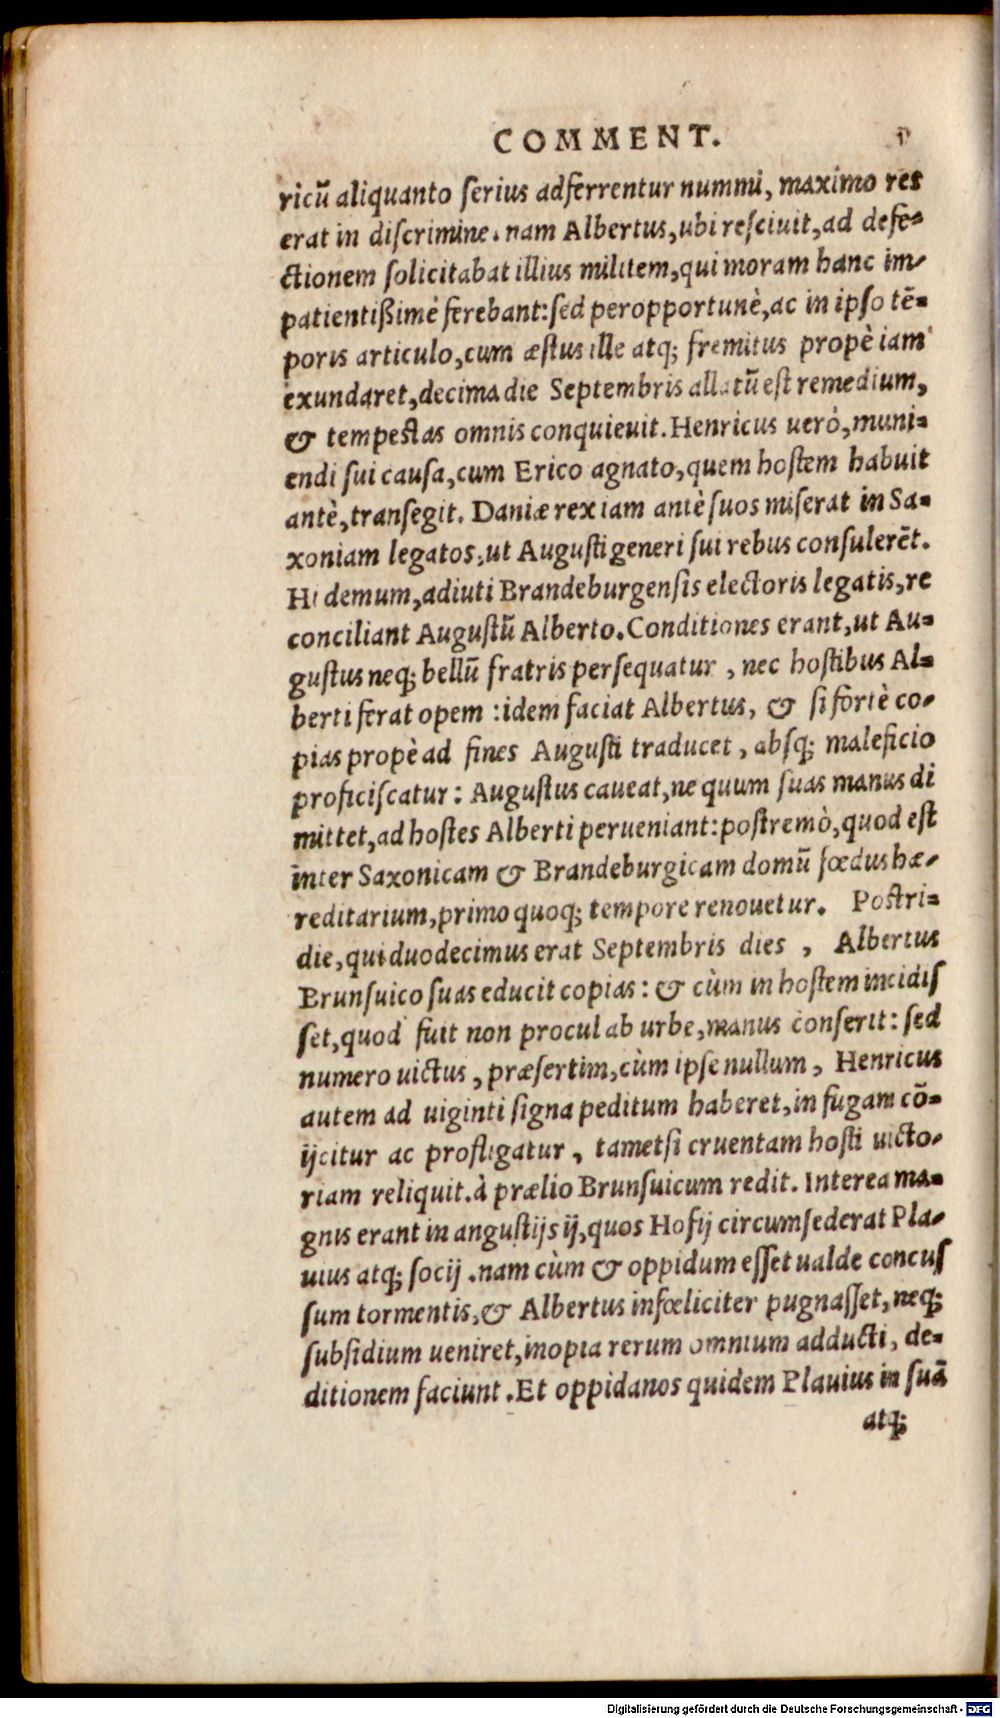 COMMENT.
ricũ aliquanto ſerius adferrentur nummi, maximo res
erat in diſcrimine. nam Albertus, ubi reſciuit, ad defe-
ctionem ſolicitabat illius militem, qui moram hanc im-
patientißimè ferebant: ſed peropportunè, ac in ipſo tẽ-
poris articulo, cum æſtus ille atq; fremitus propè iam
exundaret, decima die Septembris allatũ eſt remedium,
& tempeſtas omnis conquieuit. Henricus uerò, muni-
endi ſui cauſa, cum Erico agnato, quem hoſtem habuit
antè, tranſegit. Daniæ rex iam antè ſuos miſerat in Sa-
xoniam legatos, ut Auguſti generi ſui rebus conſulerẽt.
Hi demum, adiuti Brandeburgenſis electoris legatis, re
conciliant Auguſtũ Alberto. Conditiones erant, ut Au-
guſtus neq; bellũ fratris perſequatur, nec hoſtibus Al-
berti ferat opem: idem faciat Albertus, & ſi fortè co-
pias propè ad fines Auguſti traducet, abſq; maleficio
proficiſcatur: Auguſtus caueat, ne quum ſuas manus di
mittet, ad hoſtes Alberti perueniant: poſtremò, quod eſt
inter Saxonicam & Brandeburgicam domũ fœdus hæ-
reditarium, primo quoq; tempore renouetur. Poſtri-
die, qui duodecimus erat Septembris dies, Albertus
Brunſuico ſuas educit copias: & cùm in hoſtem incidiſ
ſet, quod fuit non procul ab urbe, manus conſerit: ſed
numero uictus, præſertim, cùm ipſe nullum, Henricus
autem ad uiginti ſigna peditum haberet, in fugam cõ-
ijcitur ac profligatur, tametſi cruentam hoſti uicto-
riam reliquit. à prælio Brunſuicum redit. Interea ma-
gnis erant in anguſtijs ij, quos Hofij circumſederat Pla-
uius atq; ſocij. nam cùm & oppidum eſſet ualde concuſ
ſum tormentis, & Albertus infœliciter pugnaſſet, neq;
ſubſidium ueniret, inopia rerum omnium adducti, de-
ditionem faciunt. Et oppidanos quidem Plauius in ſuã
atq;
Digitalisierung gefördert durch die Deutsche Forschungsgemeinschaft - DFG